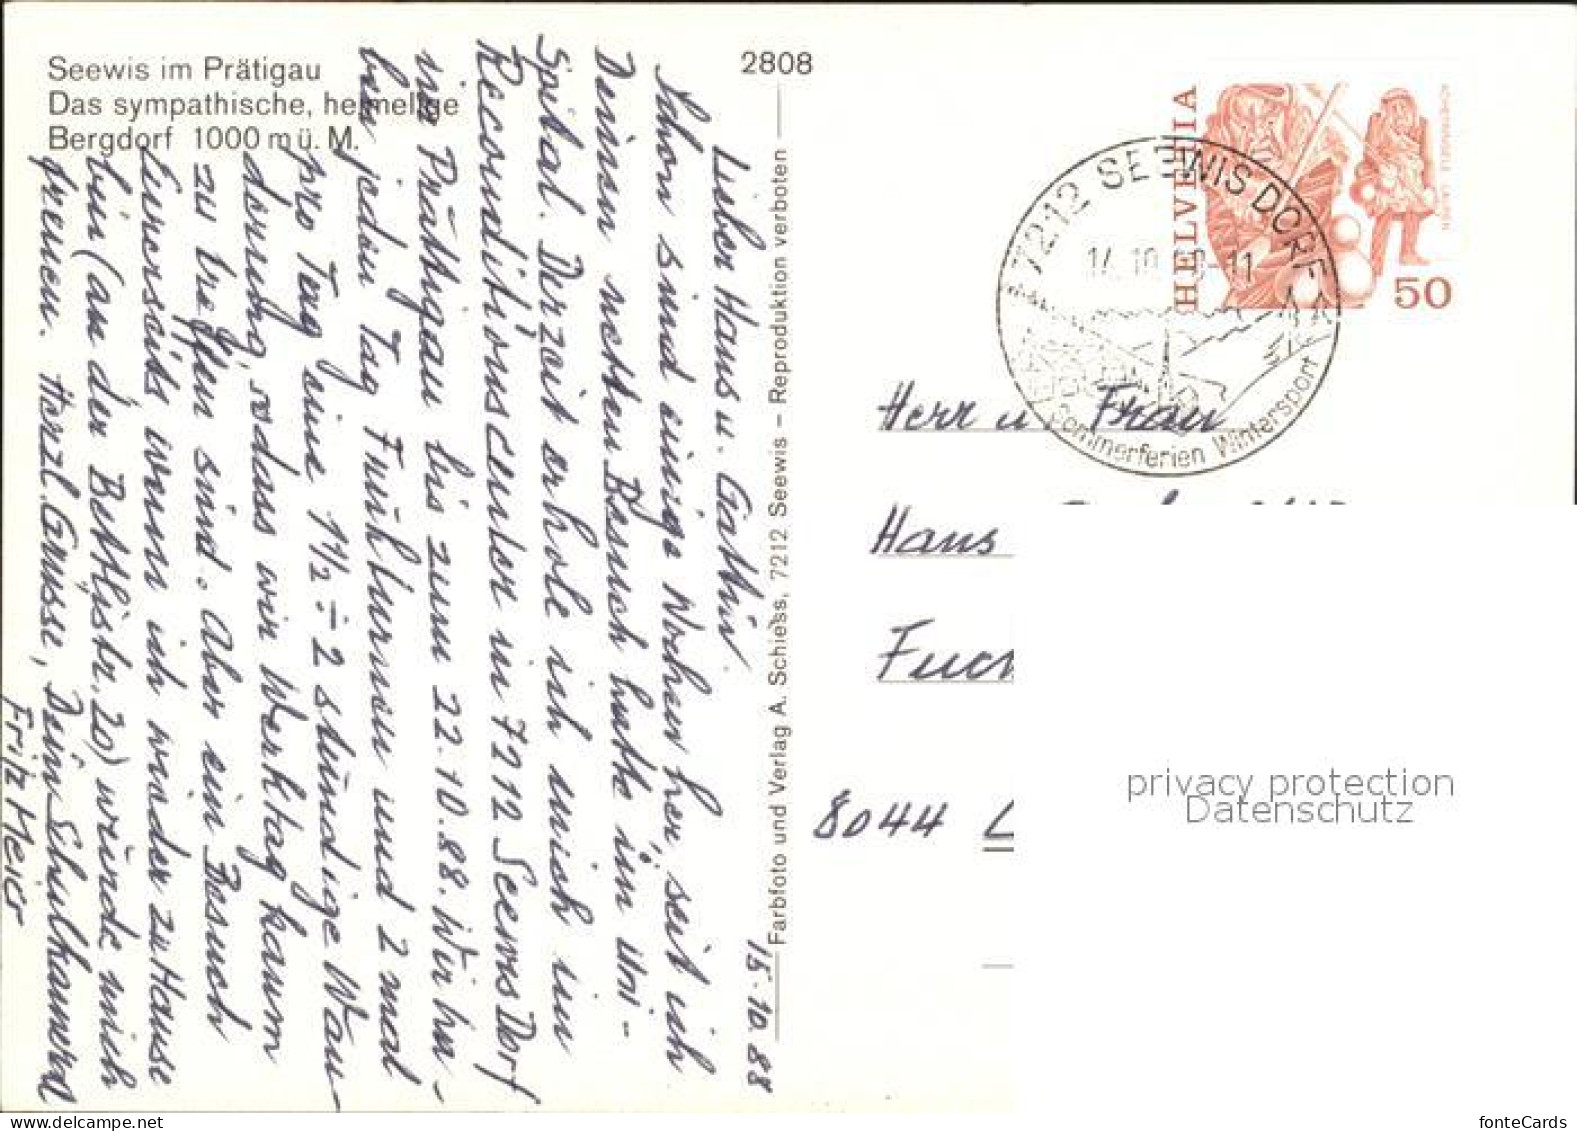 Seewis im Prätigau
Das sympathische, heimelige
Bergdorf 1000 m ü. M.
2808
15.10.88
Lieber Hans u. Gattin
Schon sind einige Wochen her, seit ich
Deinen netten Besuch hatte im Uni-
Spital. Derzeit erhole ich mich im
Reconditionscenter in 7212 Seewis Dorf
im Prättigau bis zum 22.10.88. Wir ha-
ben jeden Tag Frühturnen und 2 mal
pro Tag eine 1½ ÷ 2 stündige Wan-
derung, sodass wir Werktag kaum
zu treffen sind. Aber ein Besuch
Eurerseits wenn ich wieder zu Hause
bin (an der Bettlistr. 20) würde mich
freuen. Herzl. Grüsse, Dein Schulkamerad
Fritz Meier
Farbfoto und Verlag A. Schiess, 7212 Seewis – Reproduktion verboten
HELVETIA
50
7212 SEEWIS DORF
14.10. -11
Sommerferien Wintersport
Herr u. Frau
Hans
8044
privacy protection
Datenschutz
fonteCards